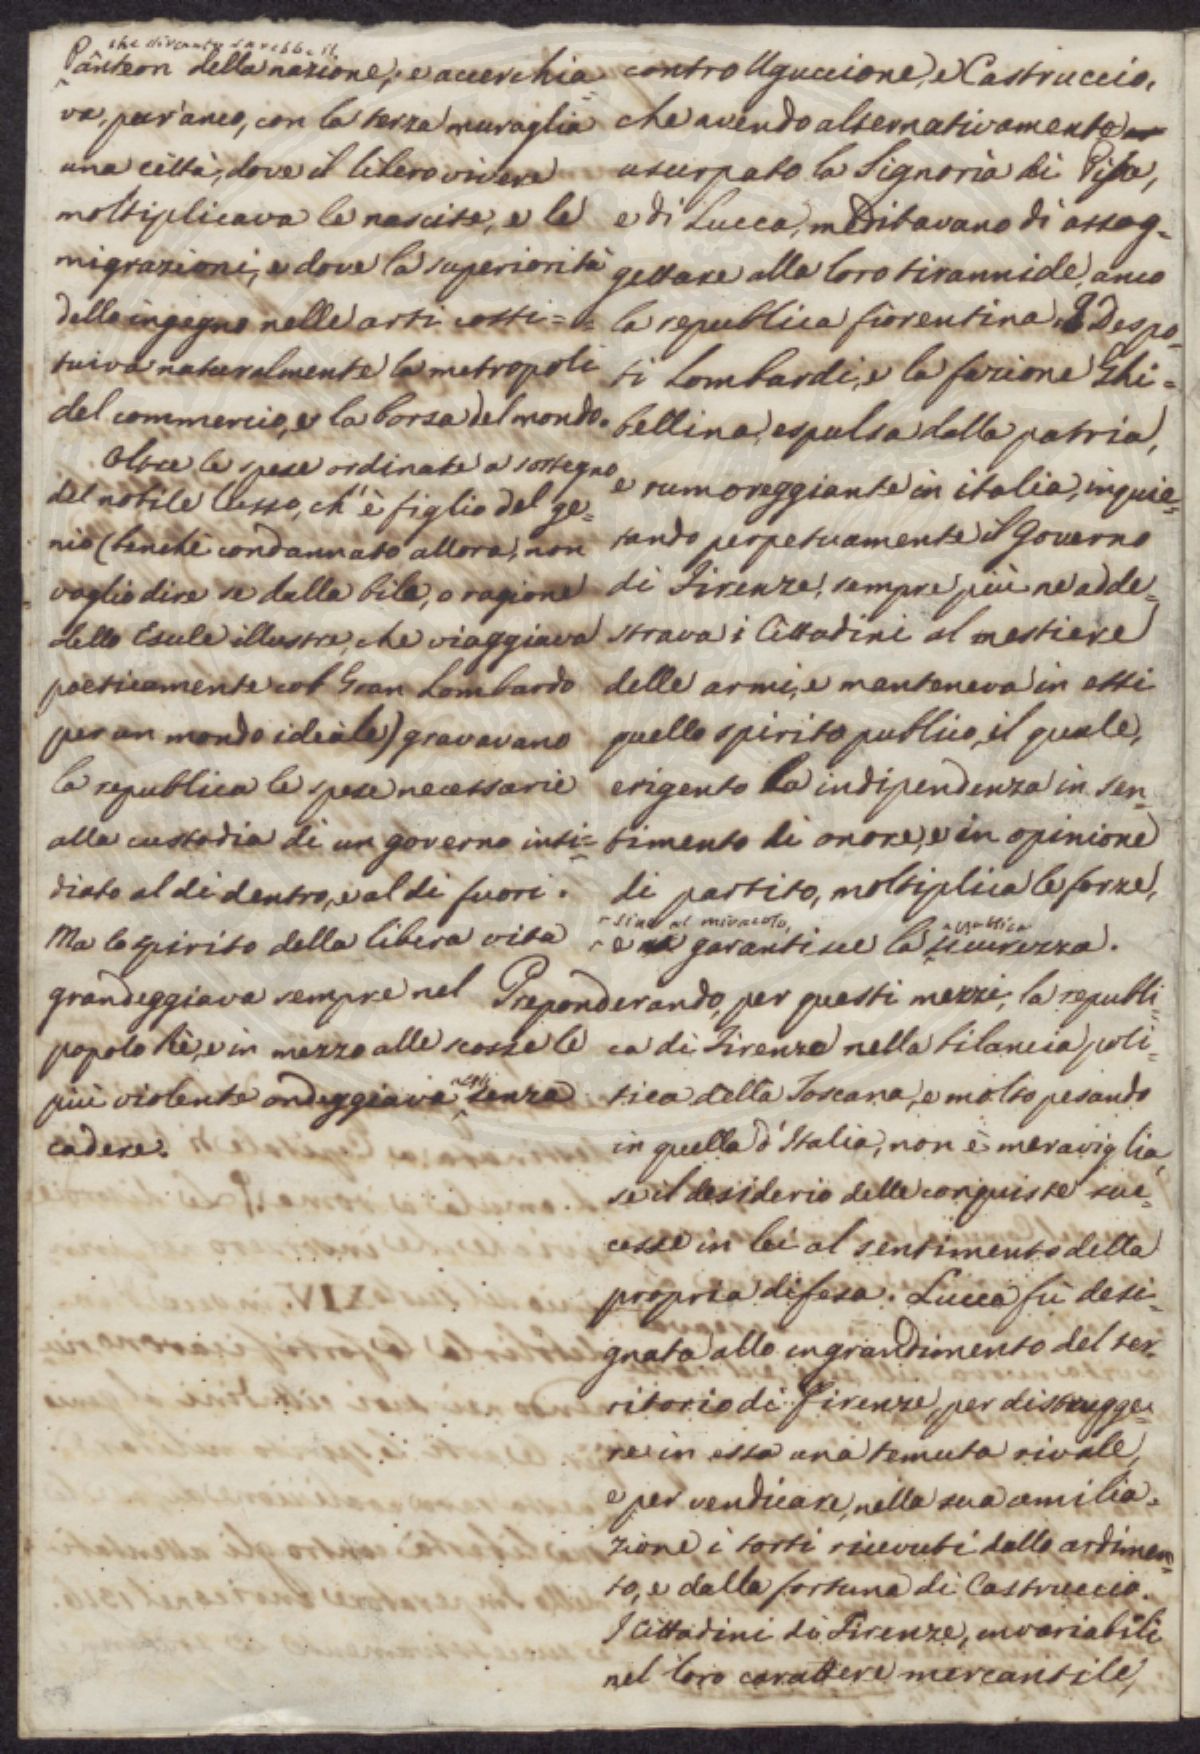 che diventar sarebbe il
Pânteon della nazione; e accerchia=
va, pur'anco, con la terza muraglia
una città, dove il libero vivere
moltiplicava le nascite, e le
migrazioni, e dove la superiorità
dello ingegno nelle arti costi=
tuiva naturalmente la metropoli
del commercio, e la borsa del mondo.
Oltre le spese ordinate a sostegno
del nobile lusso, ch'è figlio del ge=
nio (benchè condannato allora, non
voglio dire se dalla bile, o ragione
dello Esule illustre, che viaggiava
poeticamente col Gran Lombardo
per un mondo ideale) gravavano
la republica le spese necessarie
alla custodia di un governo insi=
diato al di dentro, e al di fuori.
Ma lo spirito della libera vita
grandeggiava sempre nel
popolo Rè, e in mezzo alle scosse le
più violente ondeggiava senza
cadere.
contro Uguccione, e Castruccio,
che avendo alternativamente
usurpato la Signoria di Pisa,
e di Lucca, meditavano di assog=
gettare alla loro tirannide, anco
la republica fiorentina. I Despo=
ti Lombardi, e la fazione Ghi=
bellina, espulsa dalla patria,
e rumoreggiante in italia, inquie=
tando perpetuamente il Governo
di Firenze, sempre più ne adde=
strava i Cittadini al mestiere
delle armi, e manteneva in essi
quello spirito publico, il quale,
erigento la indipendenza in sen=
timento di onore, e in opinione
di partito, moltiplica le forze,
sino al miracolo,
e garantisce la sicurezza.
Preponderando, per questi mezzi, la republi=
ca di Firenze nella bilancia poli=
tica della Toscana, e molto pesando
in quella d'Italia, non è meraviglia,
se il desiderio delle conquiste suc=
cesse in lei al sentimento della
propria difesa. Lucca fù desi=
gnata allo ingrandimento del ter=
ritorio di Firenze, per distrugge=
re in essa una temuta rivale,
e per vendicare, nella sua umilia=
zione i torti ricevuti dallo ardimen=
to, e dalla fortuna di Castruccio.
I Cittadini di Firenze, invariabili
nel loro carattere mercantile,